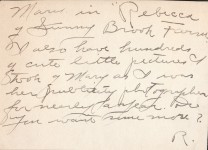 Mary in "Rebecca
of Sunny Brook Farm"
I also have hundreds
of cute little pictures I
took of Mary as I was
her publicity photographer
for nearly a year. Do
you want some more?
R.